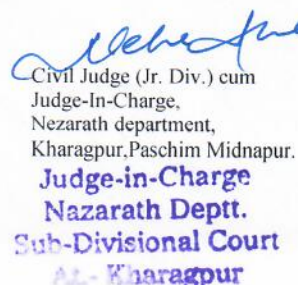 Civil Judge (Jr. Div.) cum
Judge-In-Charge,
Nezarath department,
Kharagpur,Paschim Midnapur.
Judge-in-Charge
Nazarath Deptt.
Sub-Divisional Court
At- Kharagpur